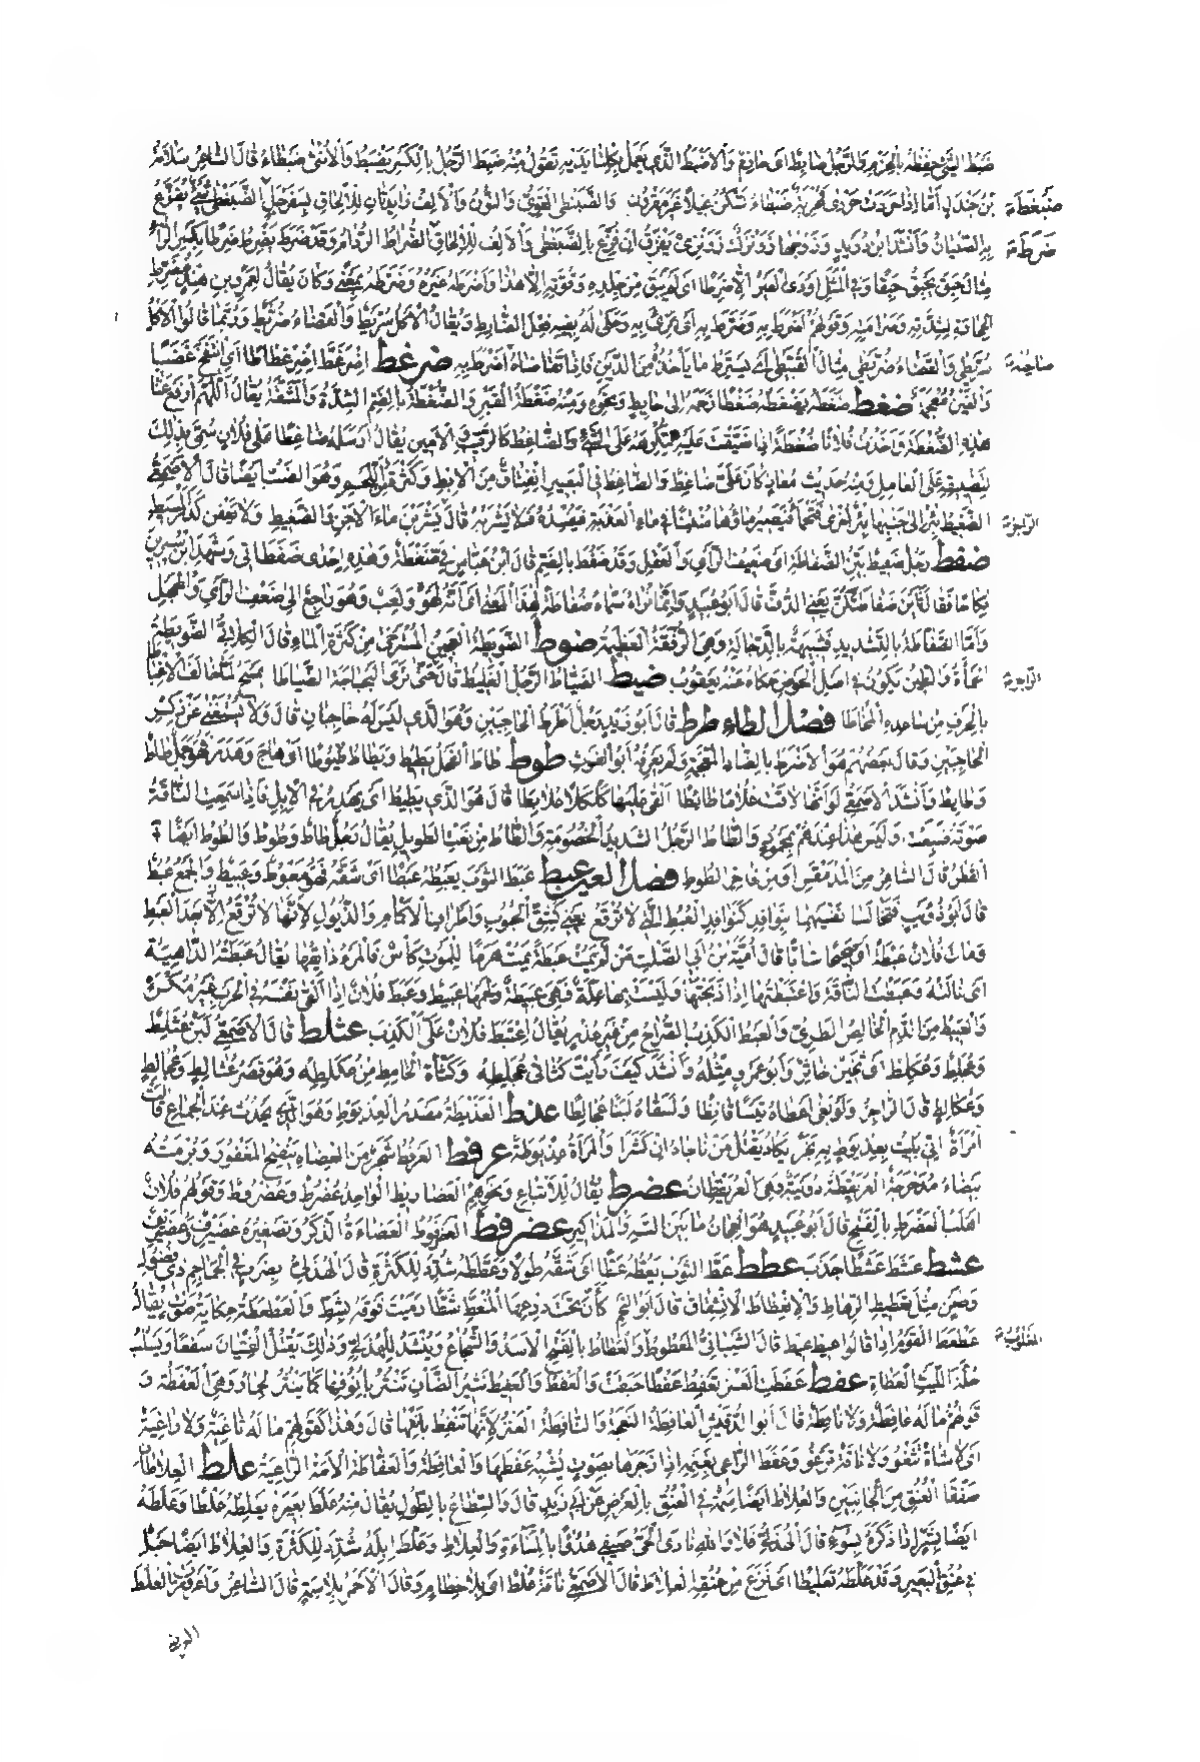 ضَبَطَ الشَّيْءَ حِفْظُهُ بِالْحَزْمِ وَالرَّجُلُ ضَابِطٌ اى حَازِمٌ وَالْاَضْبَطُ الَّذِي يَعْمَلُ بِكِلْتَا يَدَيْهِ تَقُولُ مِنْهُ ضَبِطَ الرَّجُلُ بِالْكَسْرِ يَضْبَطُ وَالْاُنْثَى ضَبْطَاءُ قَالَ الشَّاعِرُ
اَمَّا اِذَا حَرَدَتْ حَرْدِى فَمُجْرِيَةٌ ضَبْطَاءُ تَسْكُنُ غِيلًا غَيْرَ مَقْرُوبِ وَالضَّبَنْطَى الْقَوِىُّ وَالنُّونُ وَالْاَلِفُ زَايِدَتَانِ لِلْاِلْحَاقِ بِسَفَرْجَلٍ الضَّبَغْطَى شَيْءٌ يُفَزَّعُ
ضَبَغْطَى
بِهِ الصِّبْيَانُ وَاَنْشَدَ ابْنُ دُرَيْدٍ وَزَوْجُهَا زَوَنْزَكٌ زَوَنْزَى يَفْزَعُ اِنْ فُزِّعَ بِالضَّبَغْطَى وَالْاَلِفُ لِلْاِلْحَاقِ الضُّرَاطُ الرُّدَامُ وَقَدْ ضَرَطَ يَضْرِطُ ضَرِطًا بِكَسْرِ الرَّاءِ
ضَرَطَ
مِثَالُ حَبَقَ يَحْبِقُ حَبِقًا وَفِي الْمَثَلِ اَوْدَى الْعَيْرُ اِلَّا ضَرِطًا اى لَمْ يَبْقَ مِنْ جَلَدِهِ وَقُوَّتِهِ اِلَّا هَذَا وَاَضْرَطَهُ غَيْرُهُ وَضَرَّطَهُ بِمَعْنًى وَكَانَ يُقَالُ لِعَمْرِو بْنِ هِنْدٍ مُضَرِّطُ
الْحِجَارَةِ لِشِدَّتِهِ وَصَرَامَتِهِ وَقَوْلُهُمْ اَضْرَطَ بِهِ وَضَرَّطَ بِهِ اى هَزِئَ بِهِ وَحَكَى لَهُ بِفِيهِ فِعْلَ الضَّارِطِ وَيُقَالُ الْاَكْلُ سُرَّيْطٌ وَالْقَضَاءُ ضُرَّيْطٌ وَرُبَّمَا قَالُوا الْاَكْلُ
سُرَّيْطَى وَالْقَضَاءُ ضُرَّيْطَى مِثَالُ الْقُبَّيْطَى اى يَسْتَرِطُ مَا يَأْخُذُ مِنَ الدَّيْنِ فَاِذَا تَقَاضَاهُ اَضْرَطَ بِهِ ضرغط اِضْرَغَطَّ اِضْرِغْطَاطًا اى انْتَفَخَ غَضَبًا
صَاحِبُهُ
وَالْغَيْنُ مُعْجَمَةٌ ضغط ضَغَطَهُ يَضْغَطُهُ ضَغْطًا زَحَمَهُ اِلَى حَايِطٍ وَنَحْوِهِ وَمِنْهُ ضَغْطَةُ الْقَبْرِ وَالضُّغْطَةُ بِالضَّمِّ الشِّدَّةُ وَالْمَشَقَّةُ يُقَالُ اللَّهُمَّ ارْفَعْ عَنَّا
هَذِهِ الضُّغْطَةَ وَاَخَذْتُ فُلَانًا ضُغْطَةً اِذَا ضَيَّقْتَ عَلَيْهِ لِتُكْرِهَهُ عَلَى الشَّيْءِ وَالضَّاغِطُ كَالرَّقِيبِ وَالْاَمِينِ يُقَالُ اَرْسَلَهُ ضَاغِطًا عَلَى فُلَانٍ سُمِّىَ بِذَلِكَ
لِتَضْيِيقِهِ عَلَى الْعَامِلِ وَمِنْهُ حَدِيثُ مُعَاذٍ كَانَ عَلَىَّ ضَاغِطٌ وَالضَّاغِطُ فِي الْبَعِيرِ انْفِتَاقٌ مِنَ الْاِبِطِ وَكَثْرَةٌ مِنَ اللَّحْمِ وَهُوَ الضَّبُّ اَيْضًا قَالَ الْاَصْمَعِىُّ
الضَّغِيطُ بِئْرٌ اِلَى جَنْبِهَا بِئْرٌ اُخْرَى فَتَحْمَأُ فَيَصِيرُ مَاؤُهَا مُنْتِنًا فِي مَاءِ الْعَذْبَةِ فَيُفْسِدُهُ فَلَا يَشْرَبُهُ قَالَ يَشْرَبْنَ مَاءَ الْاَجْنِ وَالضَّغِيطِ وَلَا يَعَفْنَ كَدَرَ الْمَسِيطِ
الرَّاجِزُ
ضفط رَجُلٌ ضَفِيطٌ بَيِّنُ الضَّفَاطَةِ اى ضَعِيفُ الرَّأْيِ وَالْعَقْلِ وَقَدْ ضَفُطَ بِالضَّمِّ قَالَ ابْنُ عَبَّاسٍ وَهَذِهِ اِحْدَى ضَفَطَاتِى وَشَهِدَ ابْنُ سِيرِينَ
نِكَاحًا فَقَالَ اَيْنَ ضَفَاطَتُكُنَّ يَعْنِي الدُّفَّ قَالَ اَبُو عُبَيْدٍ وَاِنَّمَا نُرَاهُ سَمَّاهُ ضَفَاطَةً لِهَذَا الْمَعْنَى اى اَنَّهُ لَهْوٌ وَلَعِبٌ وَهُوَ رَاجِعٌ اِلَى ضَعْفِ الرَّأْيِ وَالْجَهْلِ
وَاَمَّا الضَّفَّاطَةُ بِالتَّشْدِيدِ فَشَبِيهَةٌ بِالدَّجَّالَةِ وَهِىَ الرُّفْقَةُ الْعَظِيمَةُ ضوط الضَّوِيطَةُ الْعَجِينُ الْمُسْتَرْخِى مِنْ كَثْرَةِ الْمَاءِ قَالَ الْكِلَابِىُّ الضَّوِيطَةُ
الْحَمْأَةُ وَالطِّينُ يَكُونُ فِي اَصْلِ الْحَوْضِ حَكَاهُ عَنْهُ يَعْقُوبُ ضيط الضَّيَّاطُ الرَّجُلُ الْغَلِيظُ قَالَ حَتَّى تَرَى الْبَجْبَاجَةَ الضَّيَّاطَا يَمْسَحُ لَمَّا حَالَفَ الْاِغْبَاطَا
الرَّاجِزُ
بِالْحَرْفِ مِنْ سَاعِدِهِ الْمُخَاطَا فصل الطاء طرط قَالَ اَبُو زَيْدٍ رَجُلٌ اَطْرَطُ الْحَاجِبَيْنِ وَهُوَ الَّذِي لَيْسَ لَهُ حَاجِبَانِ قَالَ وَلَا يُسْتَغْنَى عَنْ ذِكْرِ
الْحَاجِبَيْنِ وَقَالَ بَعْضُهُمْ هُوَ الْاَضْرَطُ بِالضَّادِ الْمُعْجَمَةِ وَلَمْ يَعْرِفْهُ اَبُو الْغَوْثِ طوط طَاطَ الْفَحْلُ يَطِيطُ وَيَطَاطُ طُيُوطًا اى هَاجَ وَهَدَرَ فَهُوَ جَمَلٌ طَاطٌ
وَطَايِطٌ وَاَنْشَدَ الْاَصْمَعِىُّ لَوْ اَنَّهَا لَاقَتْ غُلَامًا طَائِطَا اَلْقَى عَلَيْهَا كَلْكَلًا عُلَابِطَا قَالَ هُوَ الَّذِي يَطِيطُ اى يَهْدِرُ فِي الْاِبِلِ فَاِذَا سَمِعَتِ النَّاقَةُ
صَوْتَهُ ضَبِعَتْ وَلَيْسَ هَذَا عِنْدَهُمْ بِمَحْمُودٍ وَالطَّاطُ الرَّجُلُ الشَّدِيدُ الْخُصُومَةِ وَالطَّاطُ مِنْ نَعْتِ الطَّوِيلِ يُقَالُ رَجُلٌ طَاطٌ وَطُوطٌ وَالطُّوطُ اَيْضًا
الْقُطْنُ قَالَ الشَّاعِرُ مِنَ الْمُدَمْقَسِ اَوْ مِنْ فَاخِرِ الطُّوطِ فصل العين عبط عَبَطَ الثَّوْبَ يَعْبِطُهُ عَبْطًا اى شَقَّهُ فَهُوَ مَعْبُوطٌ وَعَبِيطٌ وَالْجَمْعُ عُبُطٌ
قَالَ اَبُو ذُؤَيْبٍ فَتَخَالَسَا نَفْسَيْهِمَا بِنَوَافِذٍ كَنَوَافِذِ الْعُبُطِ الَّتِي لَا تُرْقَعُ يَعْنِي كَشَقِّ الْجُيُوبِ وَاَطْرَافِ الْاَكْمَامِ وَالذُّيُولِ لِاَنَّهَا لَا تُرْقَعُ اِلَّا بَعْدَ الْعَبْطِ
وَمَاتَ فُلَانٌ عَبْطَةً اى صَحِيحًا شَابًّا قَالَ اُمَيَّةُ بْنُ اَبِي الصَّلْتِ مَنْ لَمْ يَمُتْ عَبْطَةً يَمُتْ هَرَمًا لِلْمَوْتِ كَأْسٌ فَالْمَرْءُ ذَائِقُهَا يُقَالُ عَبَطَتْهُ الدَّاهِيَةُ
اى نَالَتْهُ وَعَبَطْتُ النَّاقَةَ وَاعْتَبَطْتُهَا اِذَا ذَبَحْتَهَا وَلَيْسَتْ بِهَا عِلَّةٌ فَهِىَ عَبِيطَةٌ وَلَحْمُهَا عَبِيطٌ وَعَبَطَ فُلَانٌ اِذَا اَلْقَى نَفْسَهُ فِي الْحَرْبِ غَيْرَ مُكْرَهٍ
وَالْعَبِيطُ مِنَ الدَّمِ الْخَالِصُ الطَّرِىُّ وَالْعَبْطُ الْكَذِبُ الصُّرَاحُ مِنْ غَيْرِ عُذْرٍ يُقَالُ اِعْتَبَطَ فُلَانٌ عَلَىَّ الْكَذِبَ عثلط قَالَ الْاَصْمَعِىُّ لَبَنٌ عُثَلِطٌ
وَعُجَلِطٌ وَعُكَلِطٌ اى ثَخِينٌ خَاثِرٌ وَاَبُو عَمْرٍو مِثْلُهُ وَاَنْشَدَ كَيْفَ رَأَيْتَ كُثْأَتَىْ عُجَلِطِهْ وَكُثْأَةَ الْخَامِطِ مِنْ عُكَلِطِهْ وَهُوَ قَصْرُ عُثَالِطٍ وَعُجَالِطٍ
وَعُكَالِطٍ قَالَ الرَّاجِزُ وَلَوْ بَغَى اَعْطَاهُ تَيْسًا قَافِطَا وَلَسَقَاهُ لَبَنًا عُجَالِطَا عذط الْعَذْيَطَةُ مَصْدَرُ الْعِذْيَوْطِ وَهُوَ الَّذِي يُحْدِثُ عِنْدَ الْجِمَاعِ قَالَتِ
امْرَأَةٌ اِنِّي بُلِيتُ بِعِذْيَوْطٍ بِهِ بَخَرٌ يَكَادُ يَقْتُلُ مَنْ نَاجَاهُ اِنْ كَشَرَا وَالْمَرْأَةُ عِذْيَوْطَةٌ عرفط الْعُرْفُطُ شَجَرٌ مِنَ الْعِضَاهِ يَنْضَحُ الْمُغْفُورَ وَبَرَمَتُهُ
بَيْضَاءُ مُدَحْرَجَةٌ الْعُرَيْقِطَةُ دُوَيْبَّةٌ وَهِىَ الْعُرَيْقِطَانُ عضرط يُقَالُ لِلْاَتْبَاعِ وَنَحْوِهِمِ الْعَضَارِيطُ الْوَاحِدُ عُضْرُطٌ وَعُضْرُوطٌ وَقَوْلُهُمْ فُلَانٌ
اَهْلَبُ الْعَضْرَطِ بِالْفَتْحِ قَالَ اَبُو عُبَيْدٍ هُوَ الْعِجَانُ مَا بَيْنَ السُّبَّةِ وَالْمَذَاكِيرِ عضرفط الْعَضْرَفُوطُ الْعِظَاءَةُ الذَّكَرُ وَتَصْغِيرُهُ عُضَيْرِفٌ وَعُضَيْرِيفٌ
عشط عَشَطَهُ عَشْطًا جَذَبَهُ عطط عَطَّ الثَّوْبَ يَعُطُّهُ عَطًّا اى شَقَّهُ طُولًا وَعَطَّطَهُ شُدِّدَ لِلْكَثْرَةِ قَالَ الْهُذَلِىُّ بِضَرْبٍ فِي الْجَمَاجِمِ ذِى فُضُولٍ
وَطَعْنٍ مِثْلِ تَعْطِيطِ الرِّهَاطِ وَالْاِنْعِطَاطُ الْاِنْشِقَاقُ قَالَ اَبُو النَّجْمِ كَأَنَّ تَحْتَ دِرْعِهَا الْمُنْعَطِّ شَطًّا رَمَيْتَ فَوْقَهُ بِشَطِّ وَالْعَطْعَطَةُ حِكَايَةُ صَوْتٍ يُقَالُ
عَطْعَطَ الْقَوْمُ اِذَا قَالُوا عِيطْ عِيطْ قَالَ الشَّيْبَانِىُّ الْمَعْطُوطُ وَالْعَطَاطُ بِالْفَتْحِ الْاَسَدُ وَالشُّجَاعُ وَيُنْشَدُ لِلْهُذَلِىِّ وَذَلِكَ يَقْتُلُ الْفِتْيَانَ شَفْعًا وَيَسْلُبُ
حُلَّةَ اللَّيْثِ الْعَطَاطِ عفط عَفَطَتِ الْعَنْزُ تَعْفِطُ عَفْطًا حَبَقَتْ وَالْعَفْطُ وَالْعَفِيطُ نَثِيرُ الضَّأْنِ تَنْثُرُ بِاُنُوفِهَا كَمَا يَنْثُرُ الْحِمَارُ وَهِىَ الْعَفْطَةُ وَ
قَوْلُهُمْ مَا لَهُ عَافِطَةٌ وَلَا نَافِطَةٌ قَالَ اَبُو الدُّقَيْشِ الْعَافِطَةُ النَّعْجَةُ وَالنَّافِطَةُ الْعَنْزُ لِاَنَّهَا تَنْفِطُ بِاَنْفِهَا قَالَ وَهَذَا كَقَوْلِهِمْ مَا لَهُ ثَاغِيَةٌ وَلَا رَاغِيَةٌ
اى لَا شَاةٌ تَثْغُو وَلَا نَاقَةٌ تَرْغُو وَعَفَطَ الرَّاعِى بِغَنَمِهِ اِذَا زَجَرَهَا بِصَوْتٍ يُشْبِهُ عَفْطَهَا وَالْعَافِطَةُ وَالْعَفَّاطَةُ الْاَمَةُ الرَّاعِيَةُ علط الْعِلَاطَانِ
صَفْقَا الْعُنُقِ مِنَ الْجَانِبَيْنِ وَالْعِلَاطُ اَيْضًا سِمَةٌ فِي الْعُنُقِ بِالْعَرْضِ عَنْ اَبِي زَيْدٍ قَالَ وَالسِّطَاعُ بِالطُّولِ يُقَالُ مِنْهُ عَلَطَ بَعِيرَهُ يَعْلِطُهُ عَلْطًا وَعَلَطَهُ
اَيْضًا بِشَرٍّ اِذَا ذَكَرَهُ بِسُوءٍ قَالَ الْهُذَلِىُّ فَلَا وَاللهِ نَادَى الْحَىُّ ضَيْفِى هُدُوًّا بِالْمَسَاءَةِ وَالْعِلَاطِ وَعَلَّطَ اِبِلَهُ شُدِّدَ لِلْكَثْرَةِ وَالْعِلَاطُ اَيْضًا حَبْلٌ
فِي عُنُقِ الْبَعِيرِ وَقَدْ عَلَّطَهُ تَعْلِيطًا اى نَزَعَ مِنْ عُنُقِهِ الْعِلَاطَ قَالَ الْاَصْمَعِىُّ نَاقَةٌ عُلُطٌ اى بِلَا خِطَامٍ وَقَالَ الْاَحْمَرُ بِلَا سِمَةٍ قَالَ الشَّاعِرُ وَاعْرَوْرَتِ الْعُلُطَ